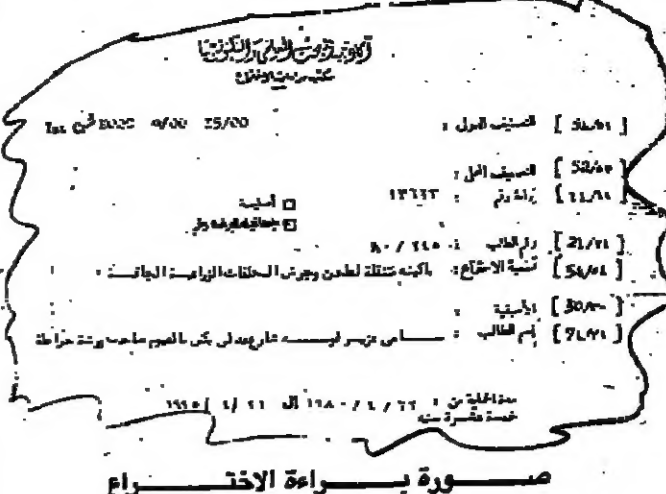 أكاديمية البحث العلمي والتكنولوجيا
مكتب براءات الاختراع
[51/٥١] التصنيف الدولي : 15/00 9/00
[52/٥٢] التصنيف المحلي :
[11/١١] براءة رقم : ١٣٦٦٣
□ أصلية
□ إضافية للبراءة رقم
[21/٢١] رقم الطلب : ٢٤٥ / ٨٠
[54/٥٤] تسمية الاختراع : ماكينه متنقلة لطحن وجرش المخلفات الزراعية الجافة
[30/٣٠] الأسبقية :
[71/٧١] إسم الطالب : سامى عزيز شارع عدلى يكن بالفيوم صاحب ورشة خراطة
مدة الحماية من : ٢٢ / ٤ / ١٩٨٠ إلى ٢١ / ٤ / ١٩٩٥
خمسة عشرة سنه
صورة براءة الاختراع